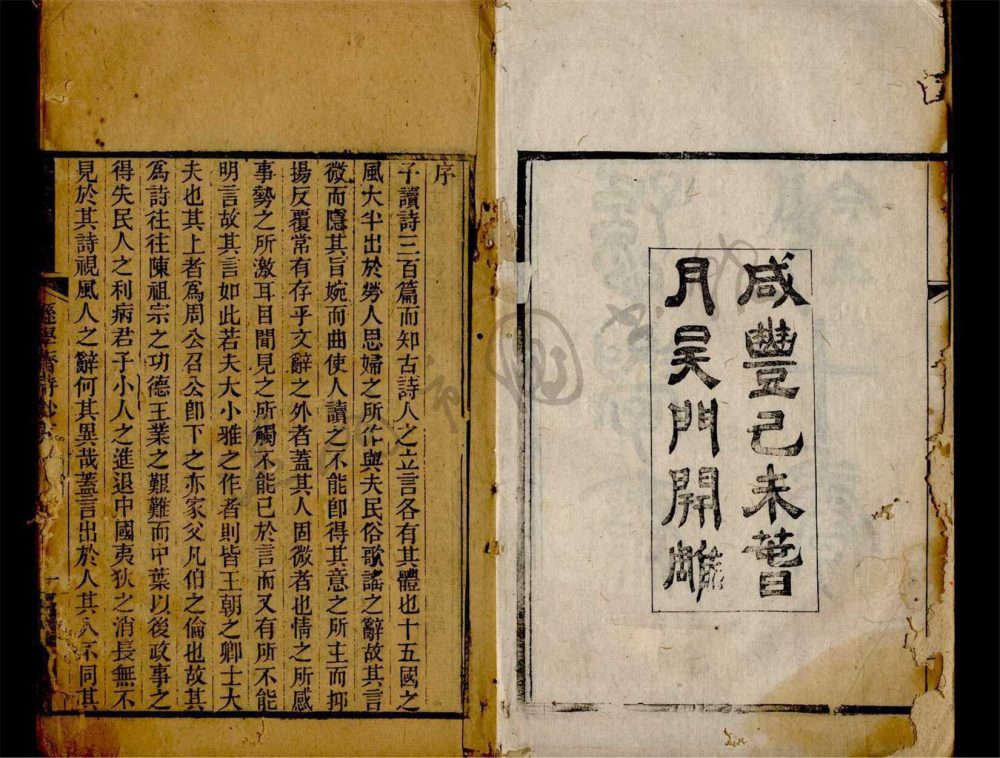 咸豐己未萅
月吳門開雕
序
予讀詩三百篇而知古詩人之立言各有其體也十五國之
風大半出於勞人思婦之所作與夫民俗歌謠之辭故其言
微而隱其旨婉而曲使人讀之不能卽得其意之所主而抑
揚反覆常有存乎文辭之外者蓋其人固微者也情之所感
事勢之所激耳目聞見之所觸不能已於言而又有所不能
明言故其言如此若夫大小雅之作者則皆王朝之卿士大
夫也其上者爲周公召公卽下之亦家父凡伯之倫也故其
爲詩往往陳祖宗之功德王業之艱難而中葉以後政事之
得失民人之利病君子小人之進退中國夷狄之消長無不
見於其詩視風人之辭何其異哉蓋言出於人其人不同其
遜學齋詩鈔